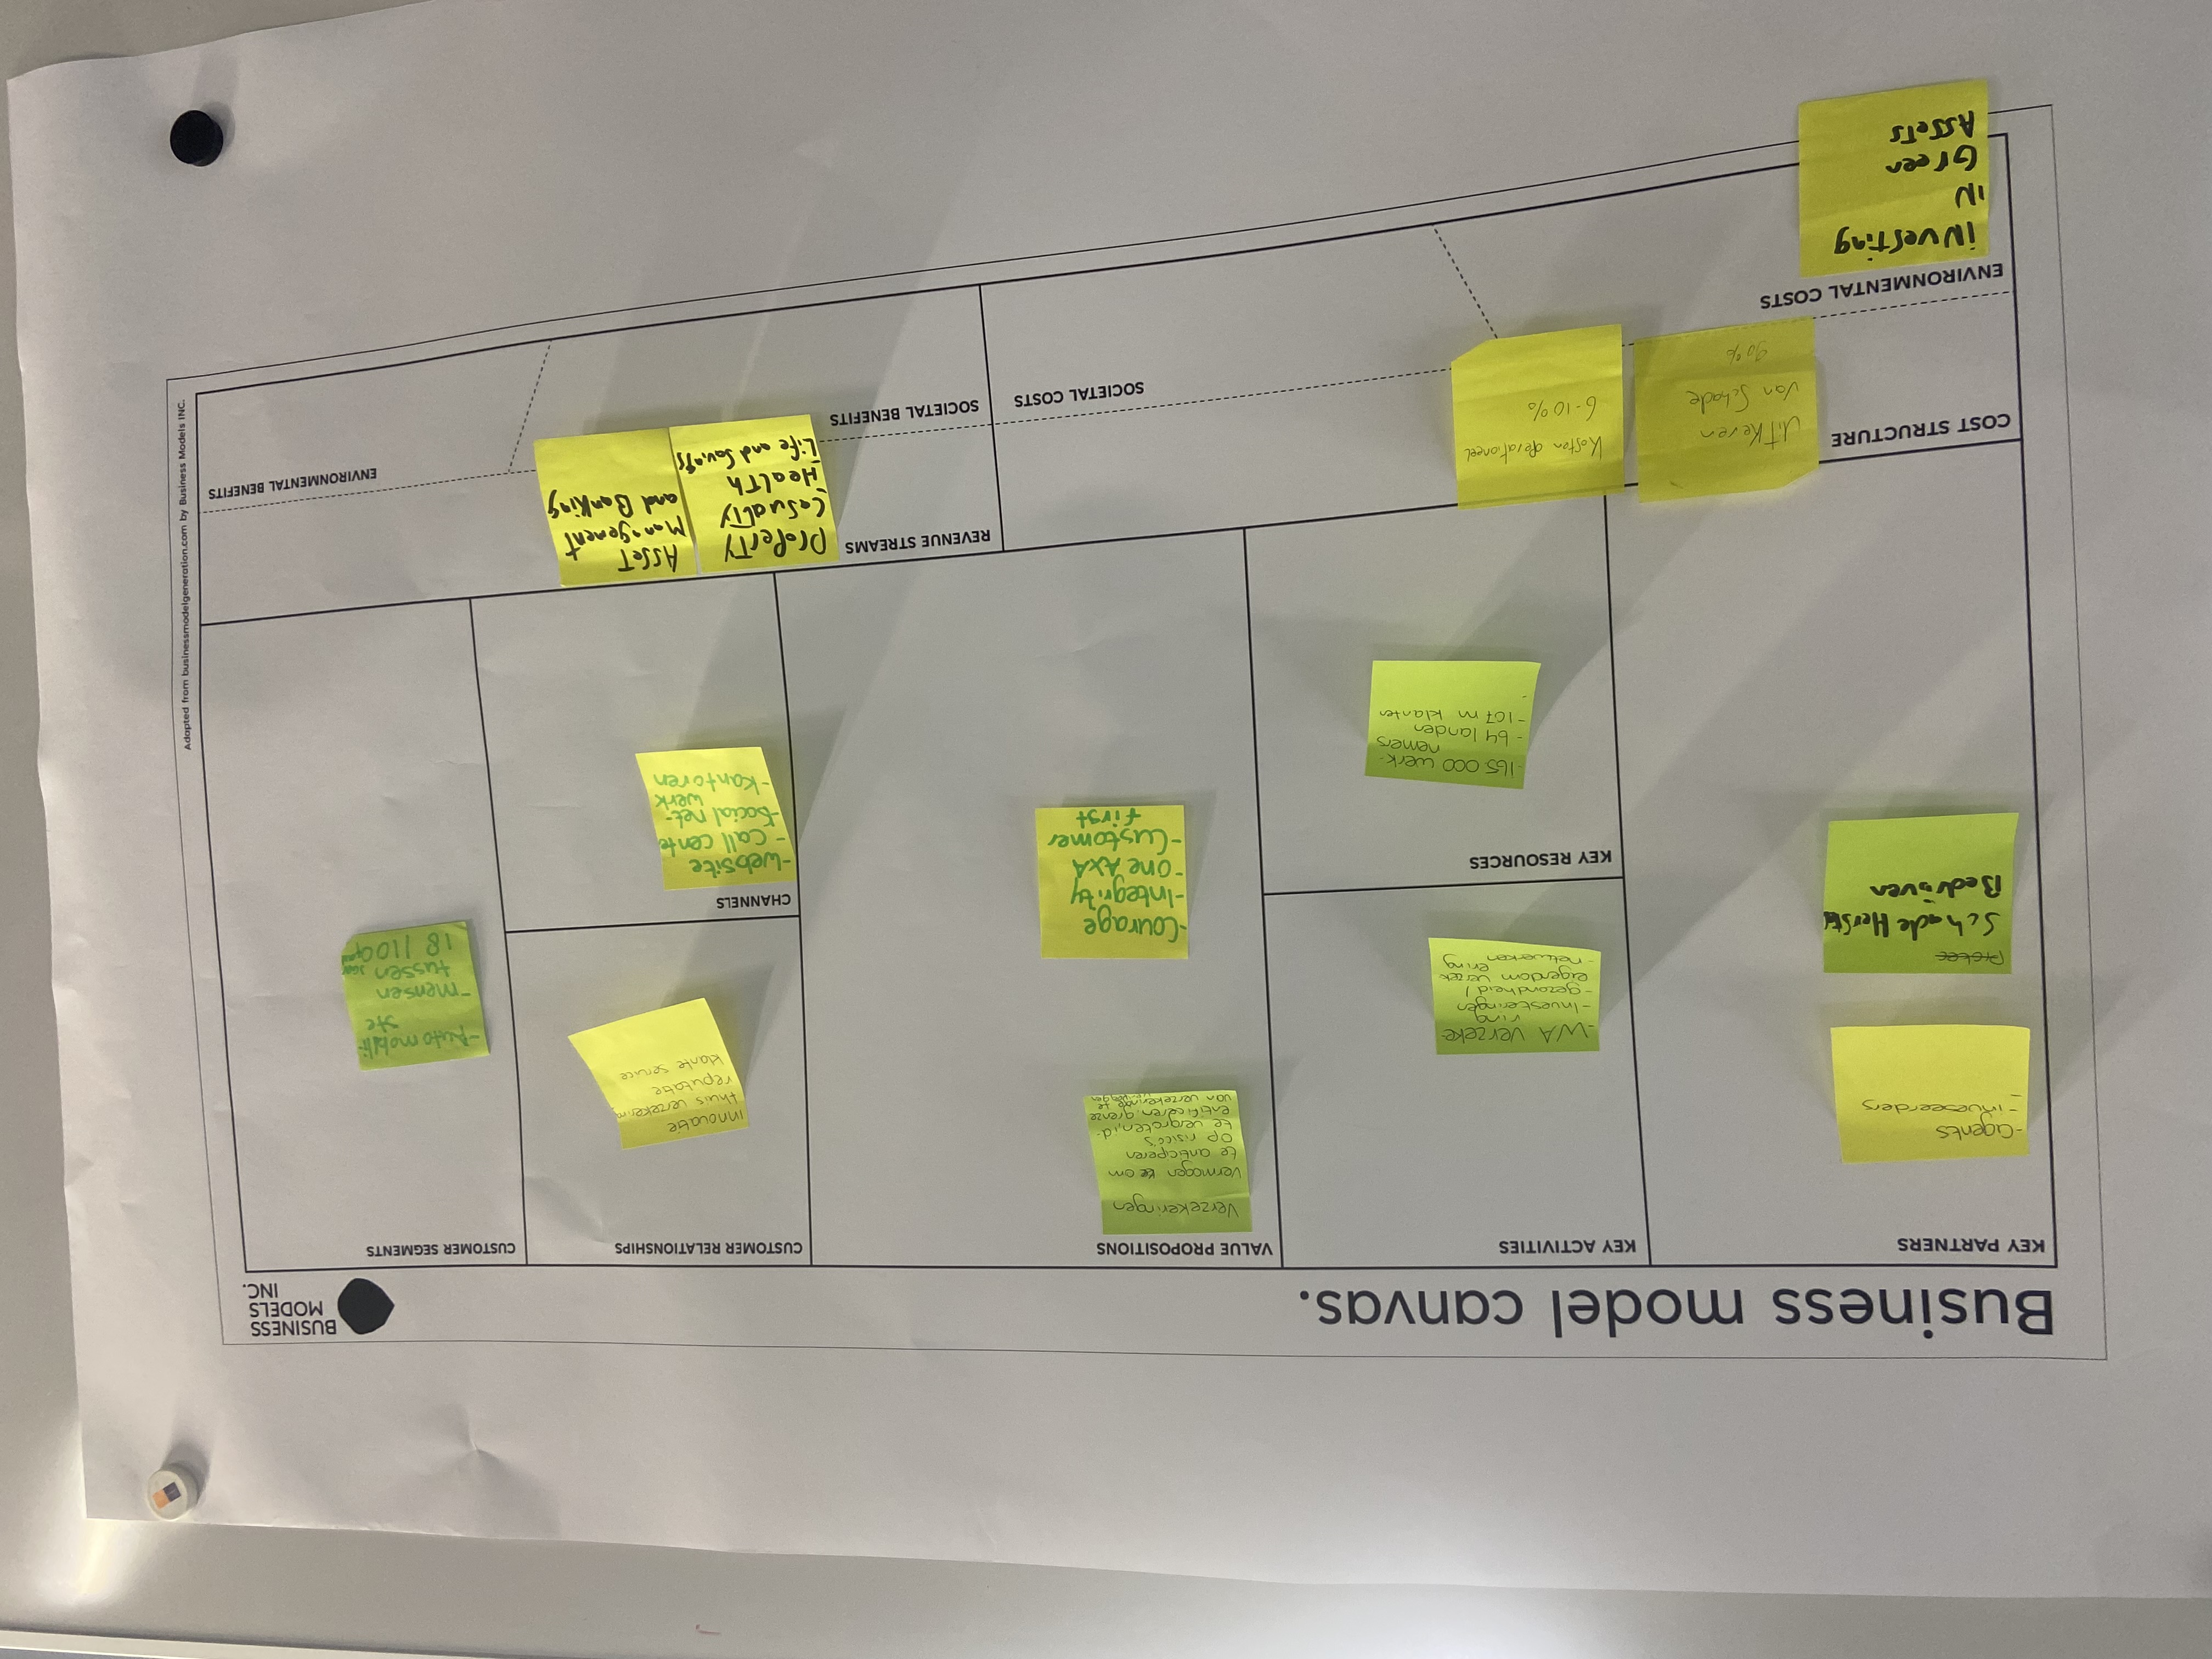 Business model canvas.
BUSINESS
MODELS
INC.
KEY PARTNERS
-agents
- inveseerders
-
Protec
Schade Herstel
Bedrijven
KEY ACTIVITIES
-WA verzeke-
ring
-Investeringen
-gezondheid /
eigendom verzek
ering
-netwerken
KEY RESOURCES
-165.000 werk-
nemers
- 64 landen
-107 m klanten
-
VALUE PROPOSITIONS
Verzekeringen
vermogen om
te anticiperen
op risico's
te vergroten, id-
entificeren, grenze
van verzekering te
-Courage
-Integrity
-One AXA
-Customer
first
CUSTOMER RELATIONSHIPS
innovatie
thuis verzekering
reputatie
klante service
CHANNELS
-website
- Call cente
-Social net-
werk
-kantoren
CUSTOMER SEGMENTS
-Automobili-
ste
-mensen
tussen
18 / 100 jaar
COST STRUCTURE
Uitkeren
van Schade
90%
Kosten operationeel
6-10%
SOCIETAL COSTS
ENVIRONMENTAL COSTS
iNvesting
iN
Green
Assets
REVENUE STREAMS
Property
Casualty
Health
Life and Savings
Asset
Management
and Banking
SOCIETAL BENEFITS
ENVIRONMENTAL BENEFITS
Adapted from businessmodelgeneration.com by Business Models INC.